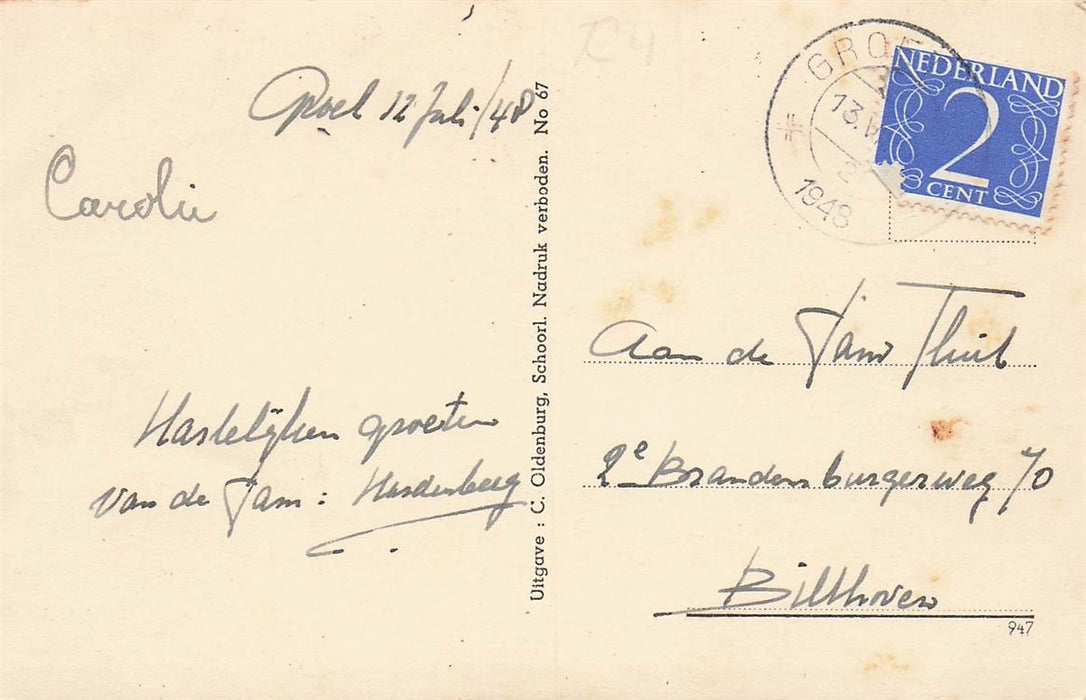 Groet 12 Juli/48
Carolie
Hartelijken groeten
van de Fam: Hardenberg
Uitgave : C. Oldenburg, Schoorl. Nadruk verboden. No 67
GROE
13.V
1948
NEDERLAND
2
CENT
Aan de Fam Thil
2e Brandenburgerweg 70
Bilthoven
947